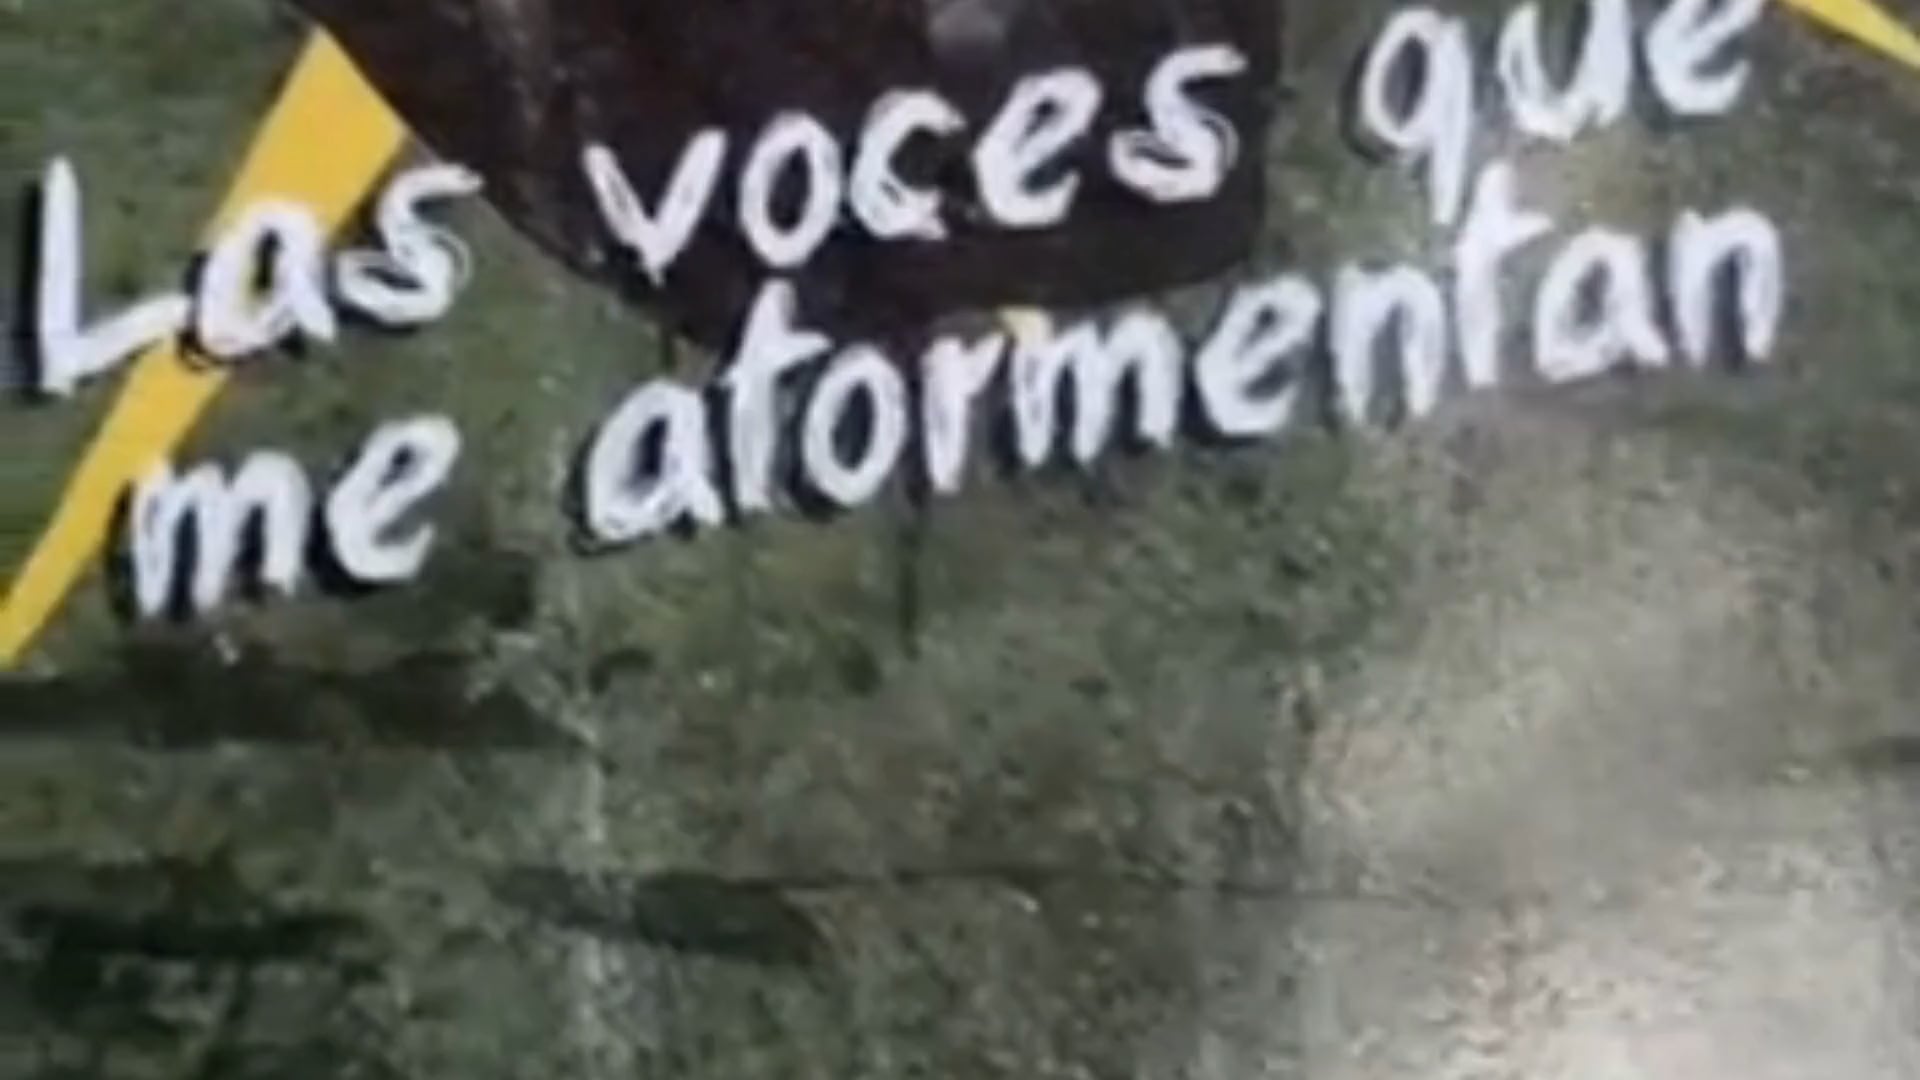 Las voces que
me atormentan